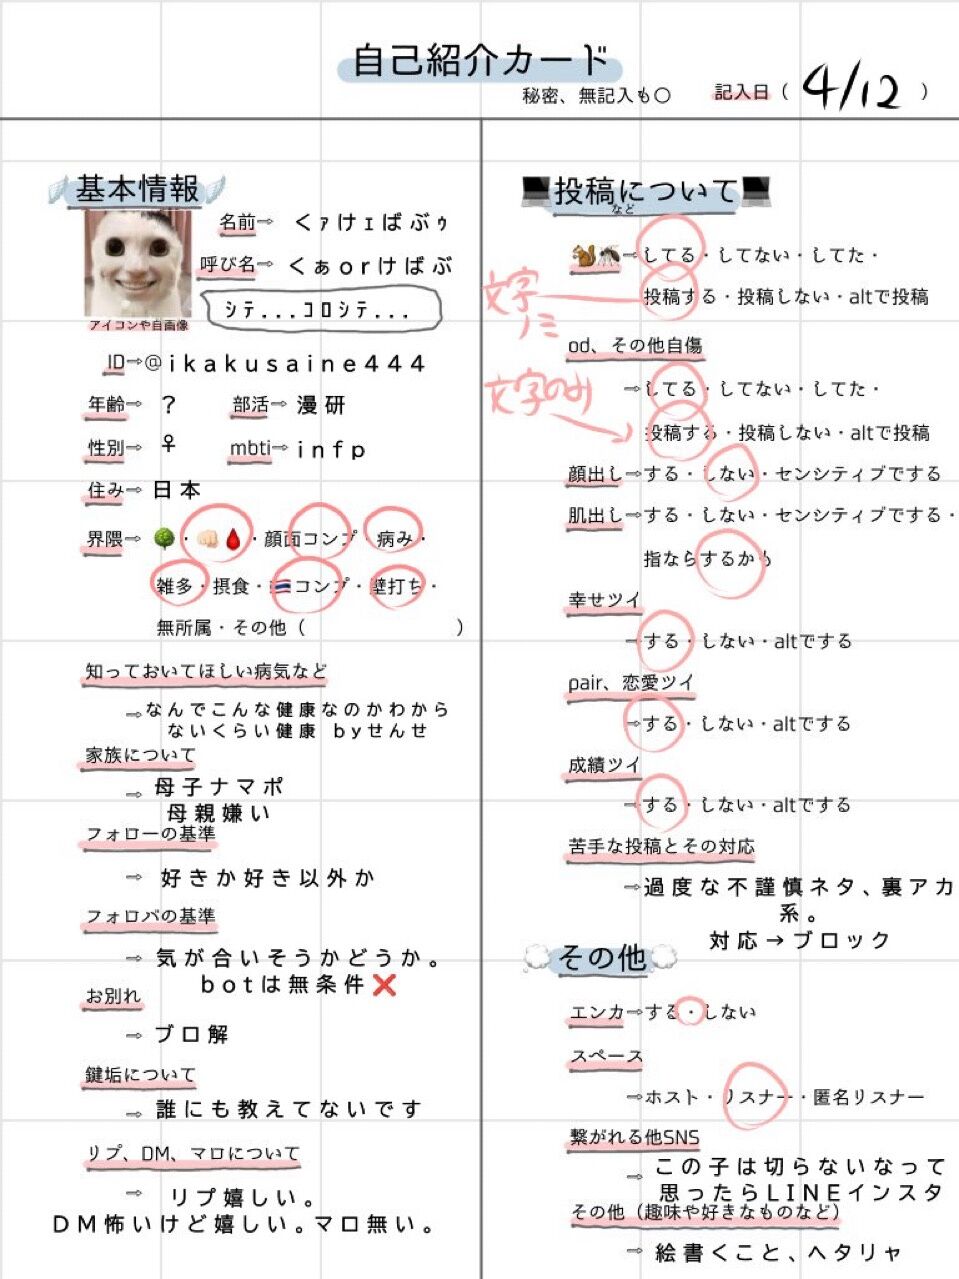 自己紹介カード
秘密、無記入も〇
記入日（ 4/12 ）
基本情報
名前⇨ くァけェばぶゥ
呼び名⇨ くぁorけばぶ
シテ...コロシテ...
アイコンや自画像
ID⇨@ikakusaine444
年齢⇨ ？ 部活⇨ 漫研
性別⇨ ♀ mbti⇨infp
住み⇨ 日本
界隈⇨ 🌳・👊🏻🩸・顔面コンプ・病み・
雑多・摂食・🇹🇭コンプ・壁打ち・
無所属・その他（ ）
知っておいてほしい病気など
⇨なんでこんな健康なのかわから
ないくらい健康 byせんせ
家族について
⇨ 母子ナマポ
母親嫌い
フォローの基準
⇨ 好きか好き以外か
フォロバの基準
⇨ 気が合いそうかどうか。
botは無条件❌
お別れ
⇨ ブロ解
鍵垢について
⇨ 誰にも教えてないです
リプ、DM、マロについて
⇨ リプ嬉しい。
DM怖いけど嬉しい。マロ無い。
💻投稿について💻
など
🐿️🦟⇨してる・してない・してた・
投稿する・投稿しない・altで投稿
文字
ノミ
od、その他自傷
⇨してる・してない・してた・
文字のみ
投稿する・投稿しない・altで投稿
顔出し⇨する・しない・センシティブでする
肌出し⇨する・しない・センシティブでする・
指ならするかも
幸せツイ
⇨する・しない・altでする
pair、恋愛ツイ
⇨する・しない・altでする
成績ツイ
⇨する・しない・altでする
苦手な投稿とその対応
⇨過度な不謹慎ネタ、裏アカ
系。
対応→ブロック
その他
エンカ⇨する・しない
スペース
⇨ホスト・リスナー・匿名リスナー
繋がれる他SNS
⇨ この子は切らないなって
思ったらLINEインスタ
その他（趣味や好きなものなど）
⇨ 絵書くこと、ヘタリャ